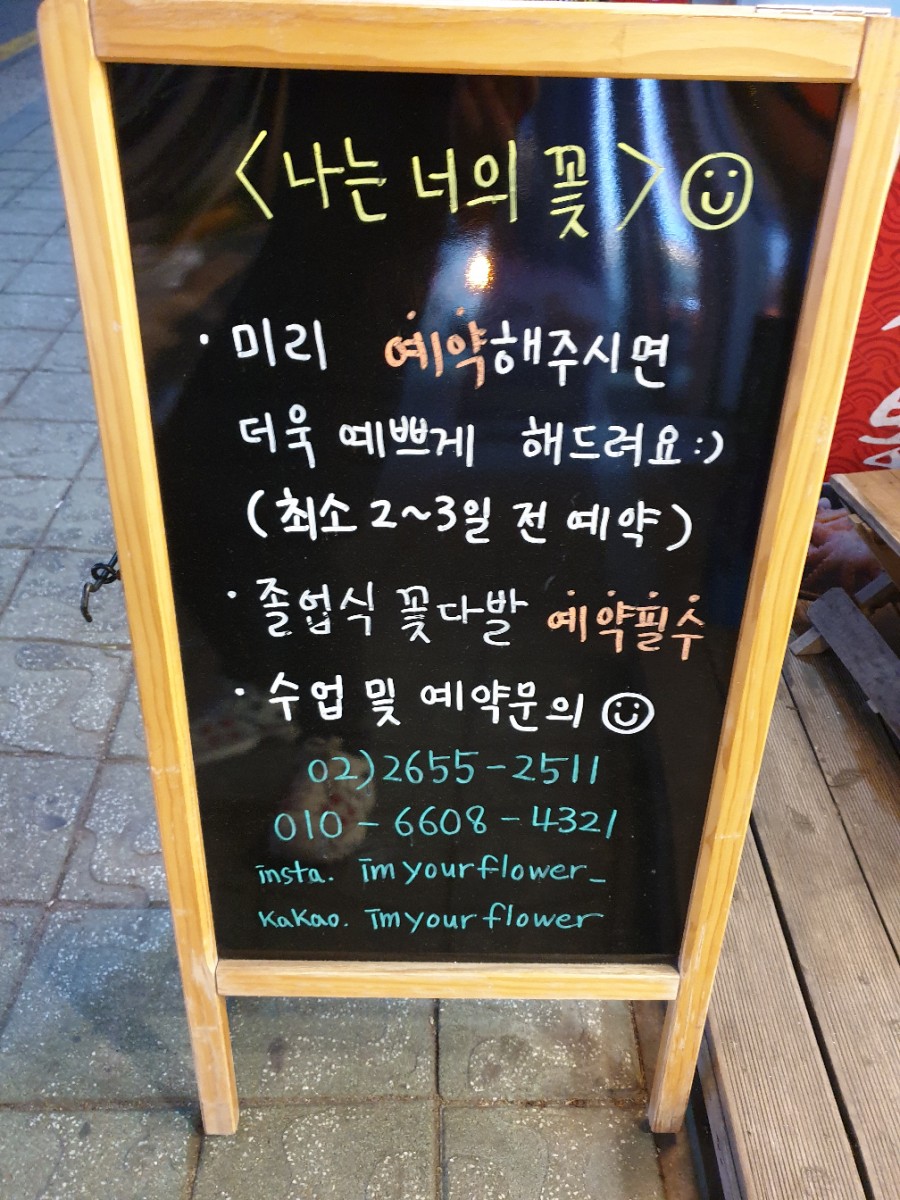 <나는 너의 꽃>
· 미리 예약해주시면
더욱 예쁘게 해드려요:)
(최소 2~3일 전 예약)
· 졸업식 꽃다발 예약필수
· 수업 및 예약문의
02)2655-2511
010-6608-4321
insta. imyourflower_
KaKao. imyourflower